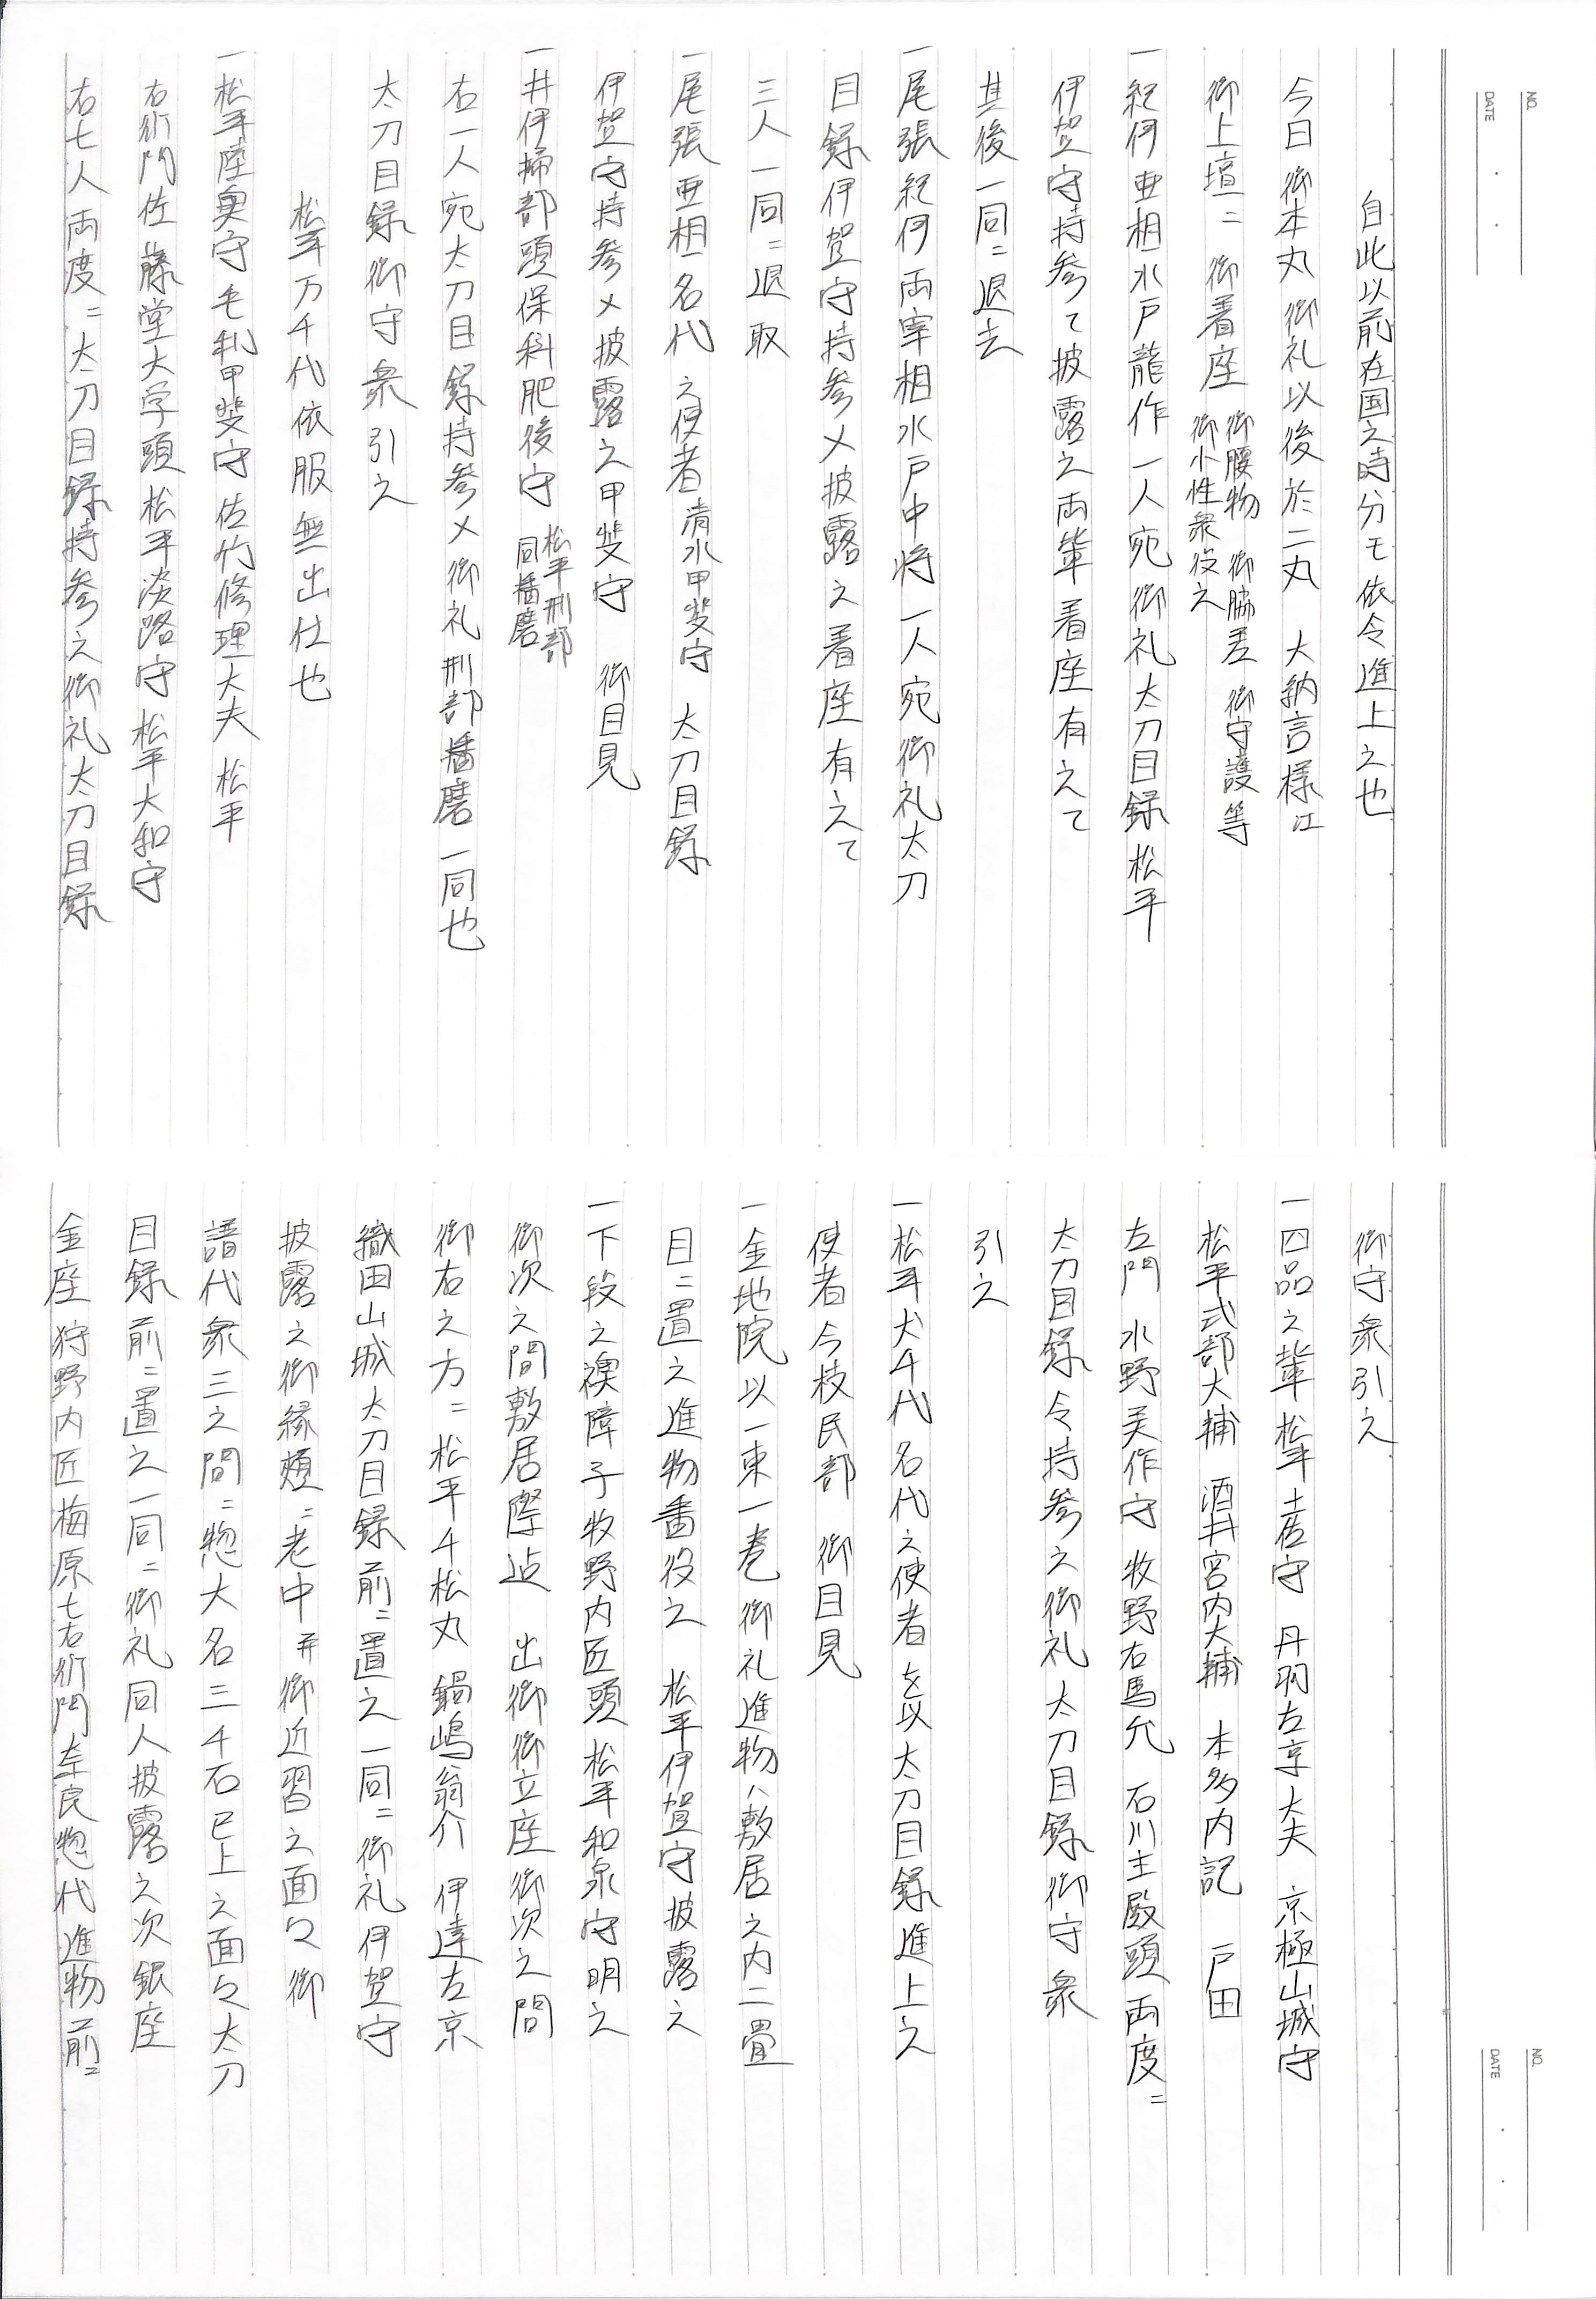 NO.
DATE
自此以前在国之時分モ依令進上之也
今日 御本丸 御礼以後於二丸 大納言様江
御上壇ニ 御着座 御腰物 御脇差 御守護等
御小性衆役之
一紀伊亜相水戸龍作一人宛御礼太刀目録松平
伊賀守持参て披露之両輩着座有之て
其後一同ニ退去
一尾張紀伊両宰相水戸中将一人宛御礼太刀
目録伊賀守持参〆披露之着座有之て
三人一同ニ退取
一尾張亜相名代之使者清水甲斐守 太刀目録
伊賀守持参〆披露之甲斐守 御目見
一井伊掃部頭保科肥後守 松平刑部
同播磨
右一人宛太刀目録持参〆御礼刑部播磨一同也
太刀目録御守衆引之
松平万千代依服無出仕也
一松平陸奥守毛利甲斐守佐竹修理大夫 松平
右衛門佐藤堂大学頭松平淡路守松平大和守
右七人両度ニ太刀目録持参之御礼太刀目録
NO.
DATE
御守衆引之
一四品之輩松平土佐守 丹羽左京大夫 京極山城守
松平式部大輔 酒井宮内大輔 本多内記 戸田
左門 水野美作守 牧野右馬允 石川主殿頭両度ニ
太刀目録令持参之御礼太刀目録御守衆
引之
一松平犬千代名代之使者を以太刀目録進上之
使者今枝民部 御目見
一金地院以一束一巻御礼進物ハ敷居之内二畳
目ニ置之進物番役之 松平伊賀守披露之
一下段之襖障子牧野内匠頭松平和泉守明之
御次之間敷居際迠 出御御立座御次之間
御右之方ニ松平千松丸 鍋嶋翁介 伊達左京
織田山城太刀目録前ニ置之一同ニ御礼伊賀守
披露之御縁頬ニ老中并御近習之面々御
譜代衆三之間ニ惣大名三千石已上之面々太刀
目録前ニ置之一同ニ御礼同人披露之次銀座
金座狩野内匠梅原七右衛門奈良惣代進物前ニ